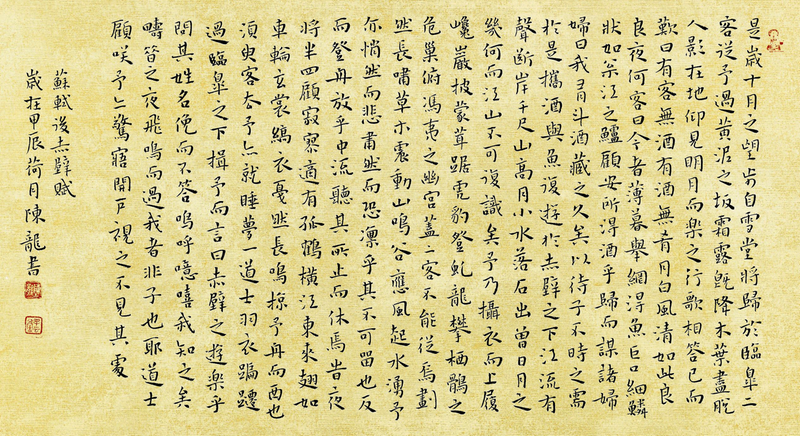 是歲十月之望步自雪堂將歸於臨皋二
客從予過黃泥之坂霜露既降木葉盡脫
人影在地仰見明月而樂之行歌相答已而
歎曰有客無酒有酒無肴月白風清如此良
良夜何客曰今者薄暮舉網得魚巨口細鱗
狀如松江之鱸顧安所得酒乎歸而謀諸婦
婦曰我有斗酒藏之久矣以待子不時之需
於是攜酒與魚復遊於赤壁之下江流有
聲斷岸千尺山高月小水落石出曾日月之
幾何而江山不可復識矣予乃攝衣而上履
巉巖披蒙茸踞虎豹登虬龍攀栖鶻之
危巢俯馮夷之幽宮蓋二客不能從焉劃
然長嘯草木震動山鳴谷應風起水湧予
亦悄然而悲肅然而恐凜乎其不可留也反
而登舟放乎中流聽其所止而休焉旹夜
將半四顧寂寥適有孤鶴橫江東來翅如
車輪玄裳縞衣戛然長鳴掠予舟而西也
須臾客去予亦就睡夢一道士羽衣蹁躚
過臨皋之下揖予而言曰赤壁之遊樂乎
問其姓名俛而不答嗚呼噫嘻我知之矣
疇昔之夜飛鳴而過我者非子也耶道士
顧咲予亦驚寤開戶視之不見其處
蘇軾後赤壁賦
歲在甲辰荷月陳龍書